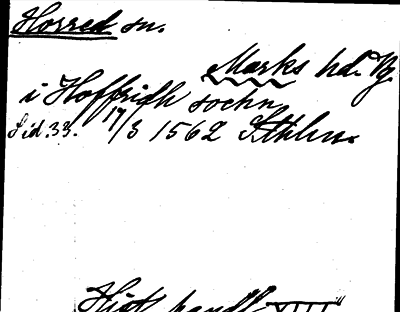 Horred sn.
Marks hd. Vg.
i Hoffridh sochn
Sid. 33. 17/3 1562 Kthln.
Hist. handl. XIII